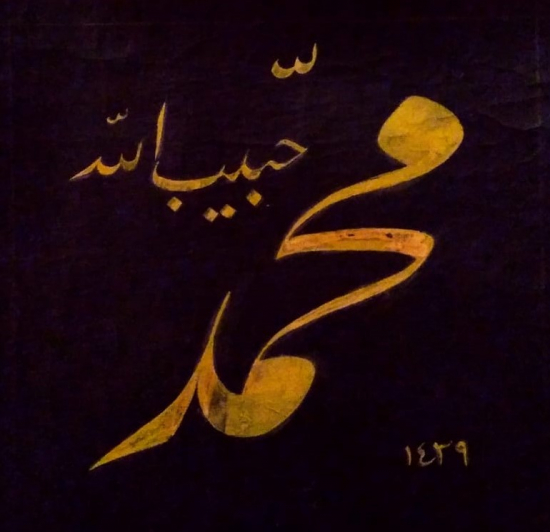 حبيب الله
محمّد
١٤٣٩